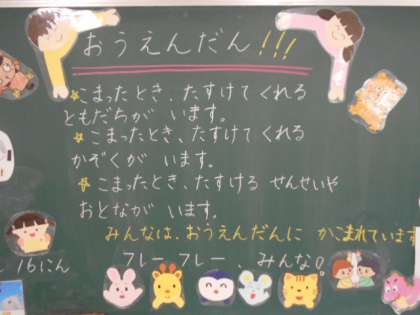 おうえんだん!!!
☆こまったとき、たすけてくれる
ともだちが います。
☆こまったとき、たすけてくれる
かぞくが います。
☆こまったとき、たすける せんせいや
おとなが います。
みんなは、おうえんだんに かこまれています
16にん
フレー フレー、みんな。